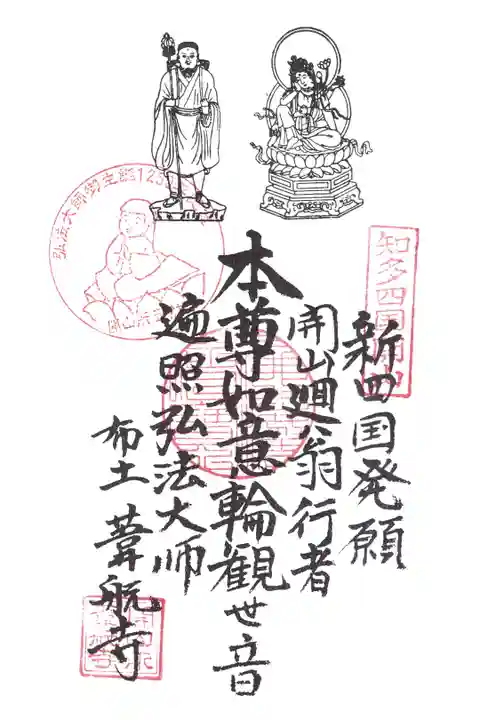 新四国発願
開山廻翁行者
本尊如意輪観世音
遍照弘法大師
布土 葦航寺
知多四国開山
弘法大師御生誕123
開山所